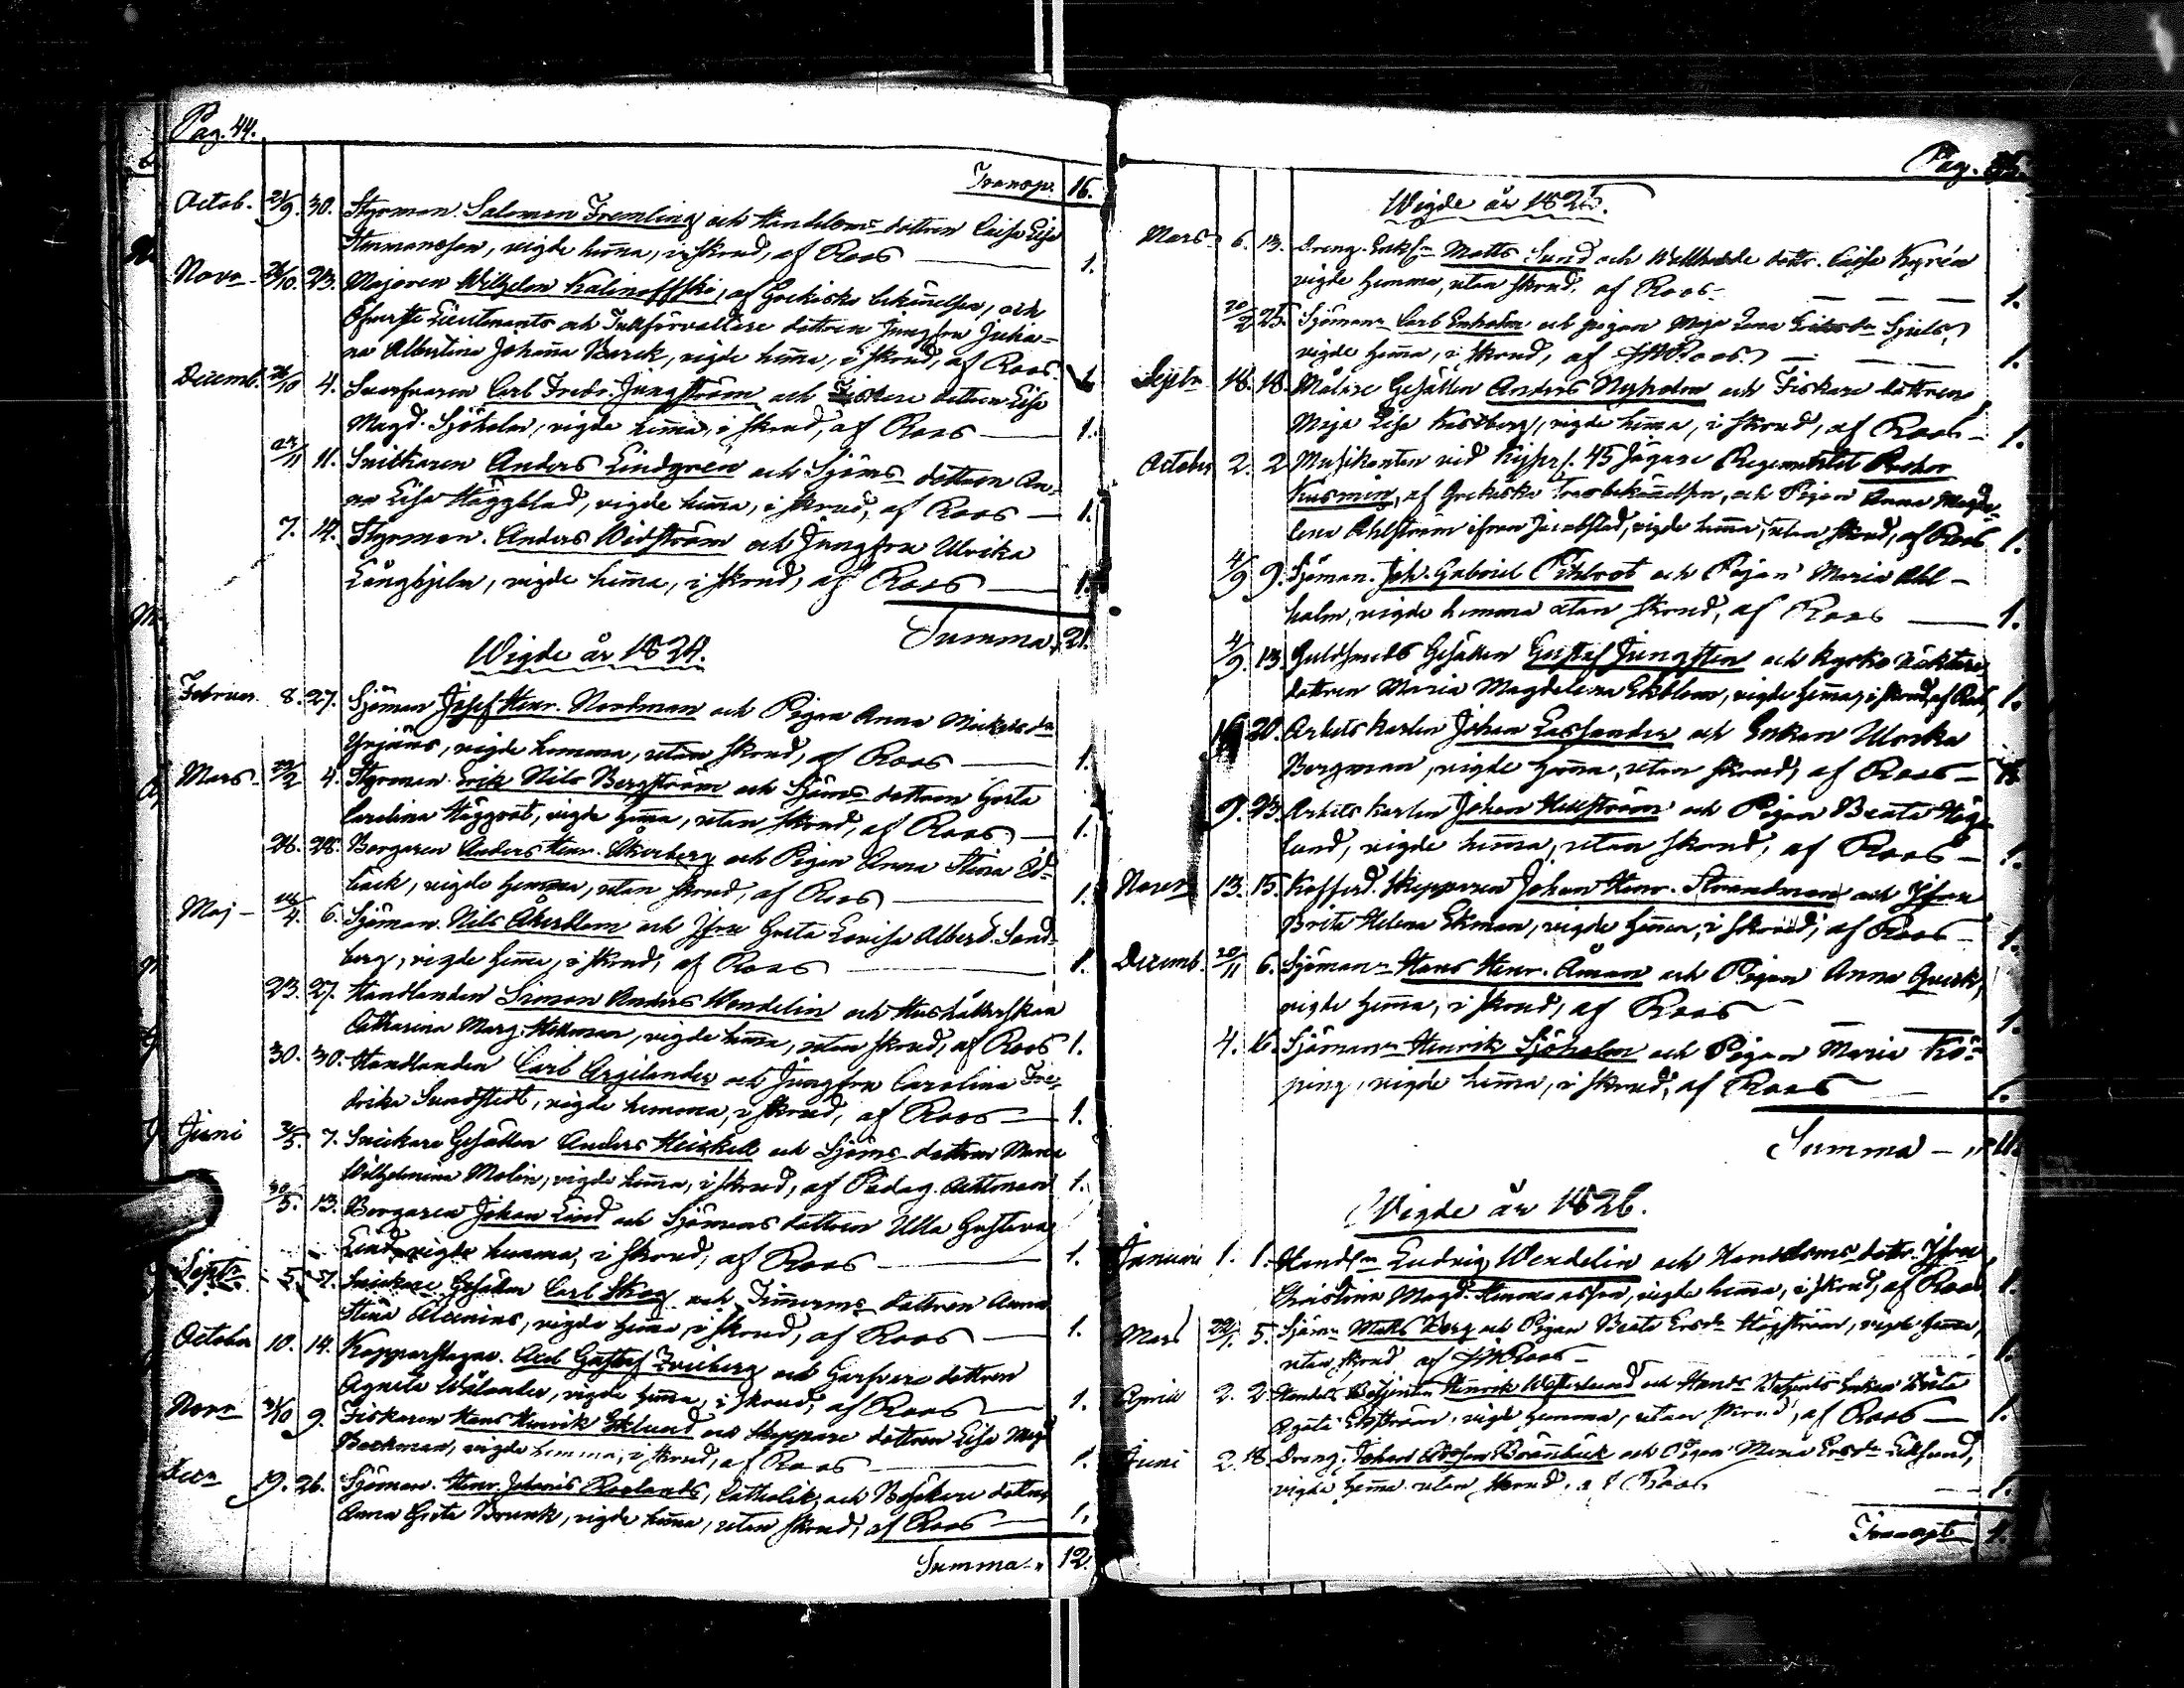 Pag. 44.
Transp. 16.
Octob. 21/9. 30. Styrman. Salomon Fremling och Handelsms dottren Caisa Lisa
Hermansson, vigde hem̄a, i skrud, af Roos — 1.
Novr 26/10. 23. Majoren Wilhelm Kalinoffski, af Grekiska bekän̄elsen, och
Öfverste Lieutenants och Tullförvaltare dottren Jungfru Julia-
na Albertina Johan̄a Barck, vigde hem̄a, i skrud, af Roos. 1.
Decemb. 26/10 4. Svarfvaren Carl Fredr. Jungström och Fiskare dottren Lisa
Magd. Sjöholm, vigde hem̄a, i skrud, af Roos — 1.
11. Snickaren Anders Lindgrén och Sjöms dottren An-
na Lisa Häggblad, vigde hem̄a, i skrud, af Roos — 1.
7. 14. Styrman. Anders Widström och Jungfru Ulrika
Långhjelm, vigde hem̄a, i skrud, af Roos — 1.
Summa, 21.
Wigde år 1824.
Februar. 8. 27. Sjöman Josef Henr. Nordman och Pigan Anna Mickelsdr
Yrjäns, vigde hemma, utan skrud, af Roos — 1.
Mars 22/2 4. Styrman Erik Nils Bergström och Sjöms dottren Greta
Carolina Häggrot, vigde hem̄a, utan skrud, af Roos — 1.
28. 28. Borgaren Anders Henr. Åkerberg och Pigan Anna Stina Ed-
bäck, vigde hemma, utan skrud, af Roos — 1.
Maj 18/4. 6. Sjöman. Nils Åkerblom och Jfru Greta Lovisa Albert. Sand-
berg, vigde hem̄a, i skrud, af Roos — 1.
23. 27. Handlanden Simon Anders Wendelin och Hushållerskan
Catharina Marg. Hellman, vigde hem̄a, utan skrud, af Roos 1.
30. 30. Handlanden Carl Argilander och Jungfru Carolina Fre-
drika Sundstedt, vigde hemma, i skrud, af Roos — 1.
Juni 2/5. 7. Snickare Gesällen Anders Heickell och Sjöms dottren Maria
Wilhelmina Molin, vigde hem̄a, i skrud, af Pædag. Aehtman 1.
30/5. 13. Borgaren Johan Lind och Sjömans dottren Ulla Gustava
Lind, vigde hemma, i skrud, af Roos — 1.
Septr 5. 7. Snickare Gesällen Carl Skog och Tim̄erms dottren Anna
Stina Alcenius, vigde hem̄a, i skrud, af Roos — 1.
October 10. 14. Kopparslagar. Axel Gustaf Friberg och Garfvare dottren
Agneta Wålander, vigde hem̄a, i skrud, af Roos — 1.
Novr 31/10 9. Fiskaren Hans Henrik Eklund och Skeppare dottren Lisa Magd.
Backman, vigde hemma, i skrud, af Roos — 1.
Decr 19. 26. Sjöman. Henr. Johanis Roelands, Catholik, och Båtskare dottren
Anna Greta Brunk, vigde hem̄a, utan skrud, af Roos — 1.
Summa 12.
Pag.
Wigde år 1825.
Mars 6. 13. Dreng. Enkl.n Matts Sund och Wallhedde dottr. Caisa Kyrén
vigde hemma, utan skrud, af Roos — 1.
20/2 25. Sjöman Carl Enholm och pigan Maja Lena
vigde hem̄a, i skrud, af JMRoos — 1.
Septbr 18. 18. Målare Gesällen Anders Nyholm och Fiskare dottren
Maja Lisa Kastberg, vigde hem̄a, i skrud, af Roos — 1.
October 2. 2 Musikanten vid Kejserl. 45 Jägare Regementet Prohor
Kusmin, af Grekiska Trosbekän̄elsen, och Pigan Anna Magda-
lena Ahlström ifrån Jacobstad, vigde hem̄a, utan skrud, af Roos 1.
4/9 9. Sjöman. Joh. Gabriel Pihlrot och Pigan Maria Ahl-
holm, vigde hemma utan skrud, af Roos — 1.
4/9. 13 Guldsmeds Gesällen Gustaf Jungsten och Kyrko väktare
dottren Maria Magdalena Ekblom, vigde hem̄a, i skrud, af Roos, 1.
20. Arbets karlen Johan Lassander och Enkan Ulrika
Bergman, vigde hem̄a, utan skrud, af Roos — 1.
9. 23. Arbets karlen Johan Hellström och Pigan Beata Häg-
lund, vigde hem̄a, utan skrud, af Roos — 1.
Novemr 13. 15. Kofferd. Skepparen Johan Henr. Strandman och Jfru
Brita Helena Ekman, vigde hem̄a, i skrud, af Roos — 1.
Decemb. 20/11 6. Sjöman Hans Henr. Åman och Pigan Anna Querk,
vigde hem̄a, i skrud, af Roos — 1.
4. 16. Sjöman Henrik Sjöholm och Pigan Maria Kö-
ping, vigde hem̄a, i skrud, af Roos — 1.
Summa — 11.
Wigde år 1826.
Januari 1. 1. Handl.n Ludvig Wendelin och Handelsms dottr. Jfru
Christina Magd. Hermansson, vigde hem̄a, i skrud, af Roos 1.
Mars 5. Sjöm. Matts Berg och Pigan Beata Ersdr Högström, vigde hem̄a,
utan skrud af JMRoos — 1.
April 2. 2. Handels Betjenten Henrik Westerlund och Hands Betjents Enkan Brita
Agata Ekström, vigde hemma, utan skrud, af Roos — 1.
Juni 2. 18. Dreng. Johan Brännbäck och Pigan Maria Ersdr Eklund,
vigde hem̄a utan skrud, af Roos — 1.
Transpt